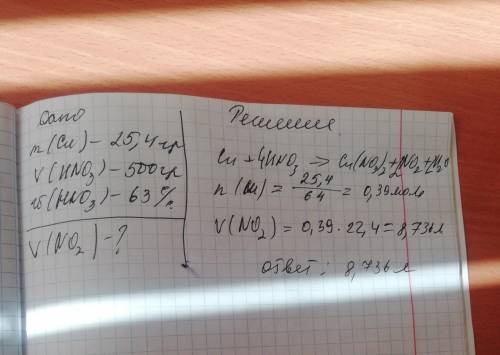 Дано
m(Cu) – 25,4гр
V(HNO3) – 500гр
w(HNO3) – 63%.
V(NO2) – ?
Решение
Cu + 4HNO3 → Cu(NO3)2 + 2NO2 + 2H2O
n(Cu) = 25,4/64 = 0,39моль
V(NO2) = 0,39 · 22,4 = 8,736л
Ответ: 8,736л